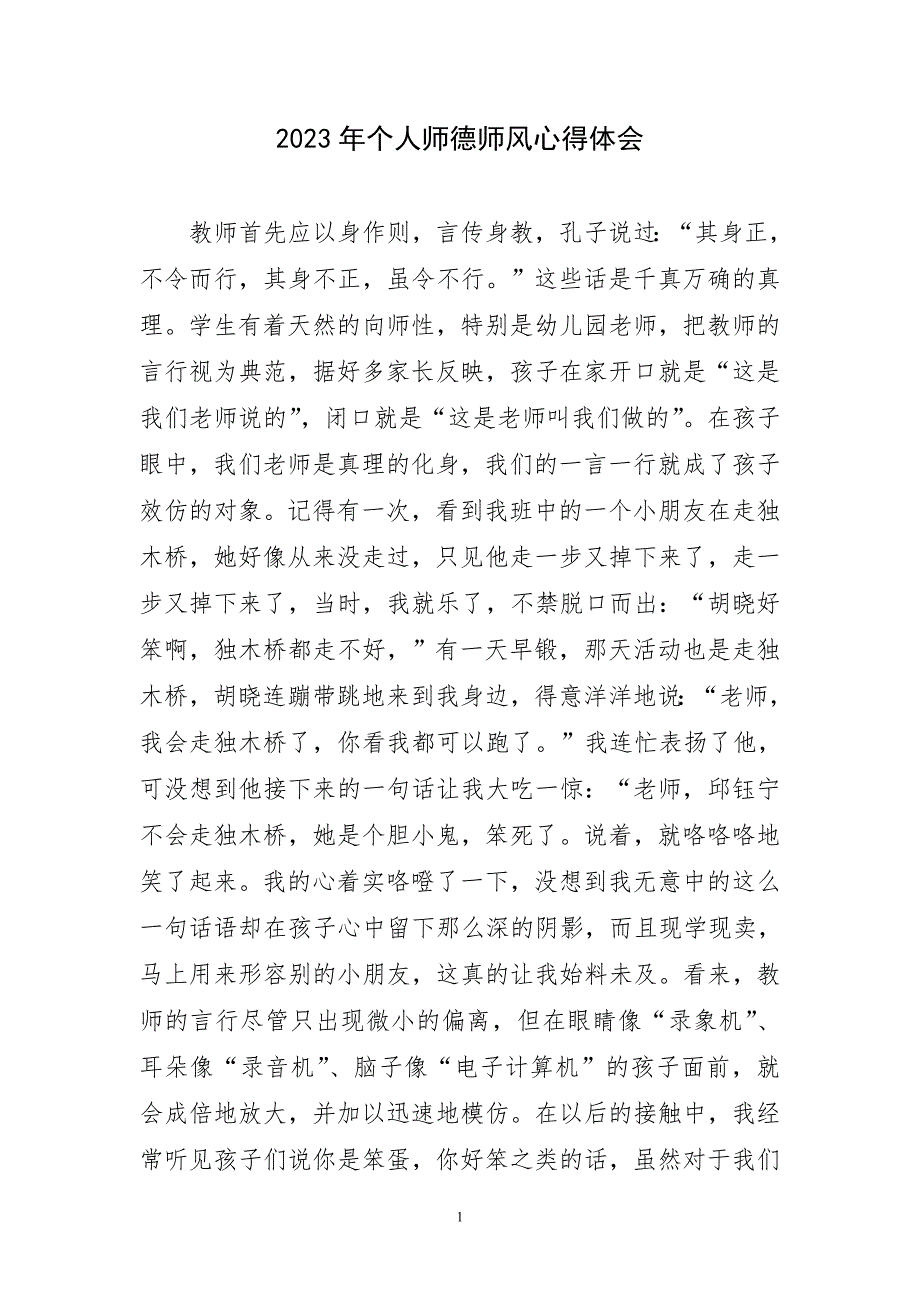 2023 年个人师德师风心得体会
教师首先应以身作则，言传身教，孔子说过：“其身正，
不令而行，其身不正，虽令不行。”这些话是千真万确的真
理。学生有着天然的向师性，特别是幼儿园老师，把教师的
言行视为典范，据好多家长反映，孩子在家开口就是“这是
我们老师说的”，闭口就是“这是老师叫我们做的”。在孩子
眼中，我们老师是真理的化身，我们的一言一行就成了孩子
效仿的对象。记得有一次，看到我班中的一个小朋友在走独
木桥，她好像从来没走过，只见他走一步又掉下来了，走一
步又掉下来了，当时，我就乐了，不禁脱口而出：“胡晓好
笨啊，独木桥都走不好，”有一天早锻，那天活动也是走独
木桥，胡晓连蹦带跳地来到我身边，得意洋洋地说：“老师，
我会走独木桥了，你看我都可以跑了。”我连忙表扬了他，
可没想到他接下来的一句话让我大吃一惊：“老师，邱钰宁
不会走独木桥，她是个胆小鬼，笨死了。说着，就咯咯咯地
笑了起来。我的心着实咯噔了一下，没想到我无意中的这么
一句话语却在孩子心中留下那么深的阴影，而且现学现卖，
马上用来形容别的小朋友，这真的让我始料未及。看来，教
师的言行尽管只出现微小的偏离，但在眼睛像“录象机”、
耳朵像“录音机”、脑子像“电子计算机”的孩子面前，就
会成倍地放大，并加以迅速地模仿。在以后的接触中，我经
常听见孩子们说你是笨蛋，你好笨之类的话，虽然对于我们
1